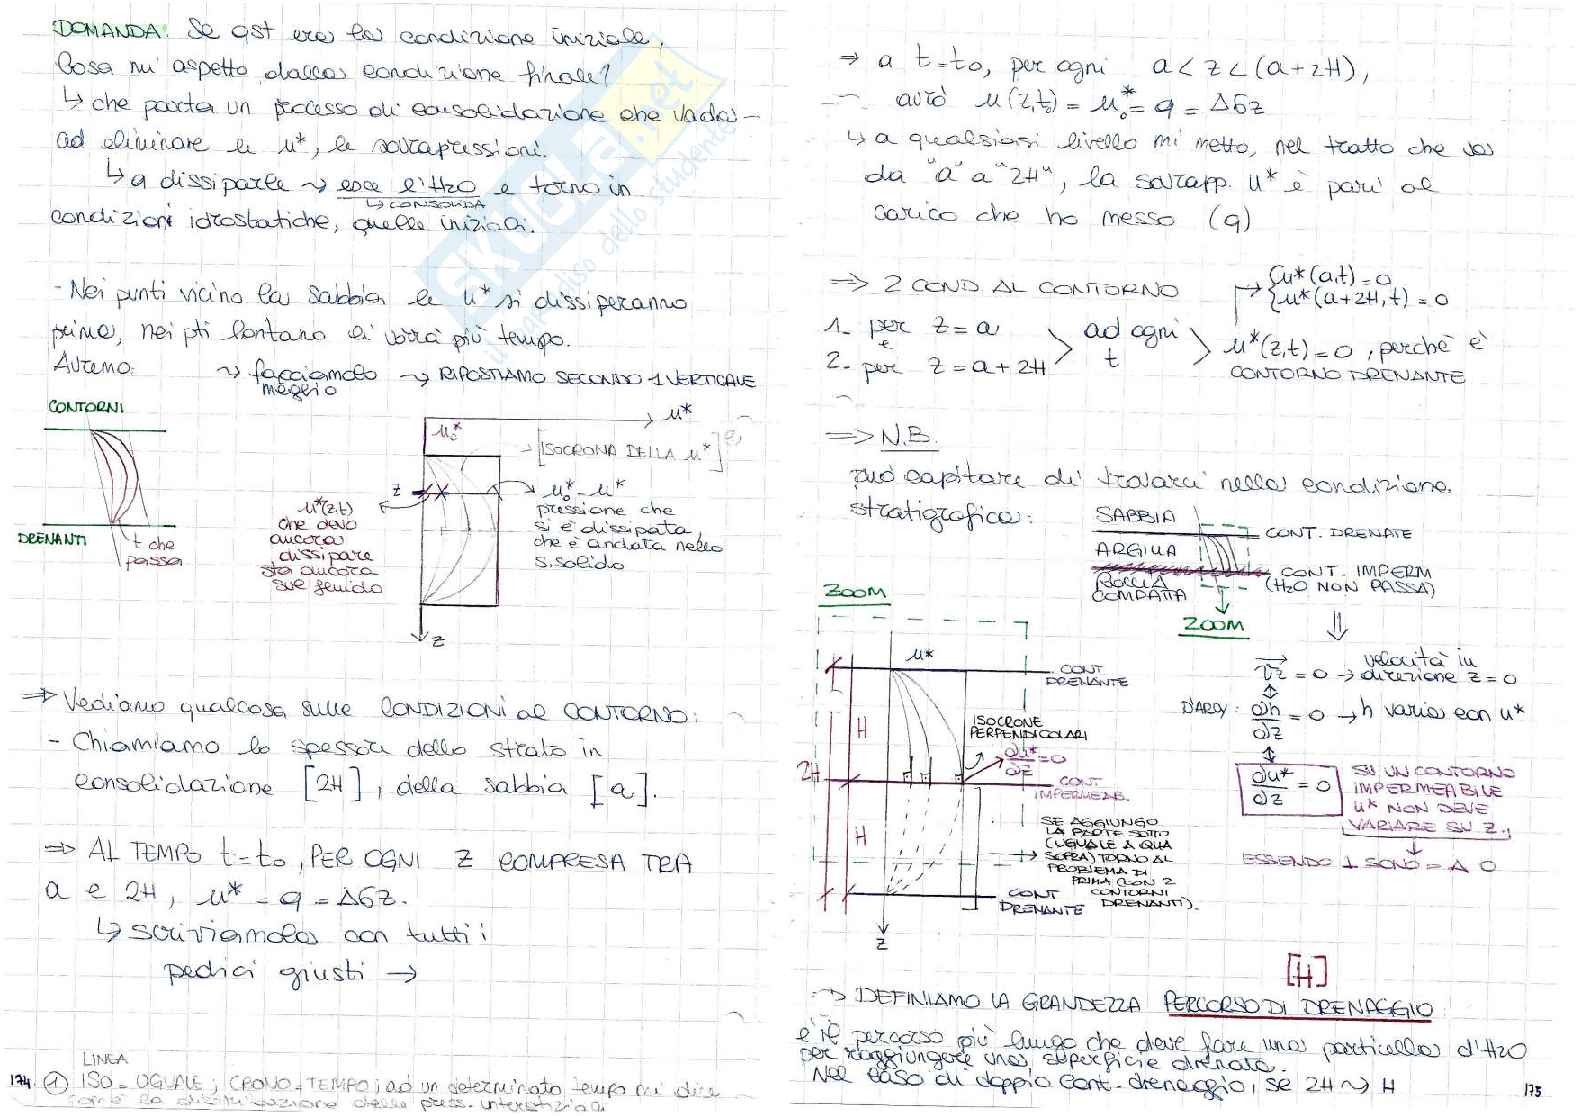 DOMANDA: Se qst era la condizione iniziale,
Cosa mi aspetto dalla condizione finale?
↳ che parta un processo di consolidazione che vada
ad eliminare le u*, le sovrapressioni.
↳ a dissiparle ⇝ esce l'H2O e torno in
↳ CONSOLIDA
condizioni idrostatiche, quelle iniziali.
- Nei punti vicino la sabbia le u* si dissiperanno
prima, nei pti lontano ci vorrà più tempo.
Avremo: ⇝ facciamolo meglio ⇝ RIPOSTIAMO SECONDO 1 VERTICALE
CONTORNI
DRENANTI
t che
passa
u*
u₀*
[ISOCRONA DELLA u*]
z
u*(z,t)
che devo
ancora
dissipare
sta ancora
sul fluido
u₀* - u*
pressione che
si è dissipata,
che è andata nello
s. solido
z
⇒ Vediamo qualcosa sulle CONDIZIONI al CONTORNO:
- Chiamiamo lo spessore dello strato in
consolidazione [2H], della sabbia [a].
⇒ AL TEMPO t=t₀, PER OGNI z COMPRESA TRA
a e 2H, u* = q = Δσz.
↳ scriviamola con tutti i
pedici giusti →
LINEA
174. ① ISO=UGUALE; CRONO=TEMPO; ad un determinato tempo mi dice
com'è la distribuzione delle press. interstiziali
⇒ a t=t₀, per ogni a < z < (a+2H),
avrò u(z,t₀) = u₀* = q = Δσz
↳ a qualsiasi livello mi metto, nel tratto che va
da "a" a "2H", la sovrapp. u* è pari al
carico che ho messo (q)
⇒ 2 COND. AL CONTORNO
{u*(a,t) = 0
{u*(a+2H,t) = 0
1. per z = a
e
2. per z = a+2H
ad ogni
t
u*(z,t) = 0, perchè è
CONTORNO DRENANTE
⇒ N.B.
può capitare di trovarci nella condizione
stratigrafica:
SABBIA
CONT. DRENATE
ARGILLA
CONT. IMPERM
(H2O NON PASSA)
ROCCIA
COMPATTA
ZOOM
ZOOM
u*
CONT
DRENANTE
H
ISOCRONE
PERPENDICOLARI
∂u*/∂z = 0
2H
CONT.
IMPERMEAB.
H
SE AGGIUNGO
LA PARTE SOTTO
(UGUALE A QUA
SOPRA) TORNO AL
PROBLEMA DI
PRIMA (CON 2
CONTORNI
DRENANTI).
CONT
DRENANTE
z
vz = 0 → velocità in
direzione z = 0
DARCY: ∂h/∂z = 0 → h varia con u*
∂u*/∂z = 0
SU UN CONTORNO
IMPERMEABILE
u* NON DEVE
VARIARE SU z.
[H]
→ DEFINIAMO LA GRANDEZZA PERCORSO DI DRENAGGIO:
è il percorso più lungo che deve fare una particella d'H2O
per raggiungere una superficie drenata.
Nel caso di doppio cont. drenaggio, se 2H ⇝ H
175
SKUOLA.net
il paradiso dello studente